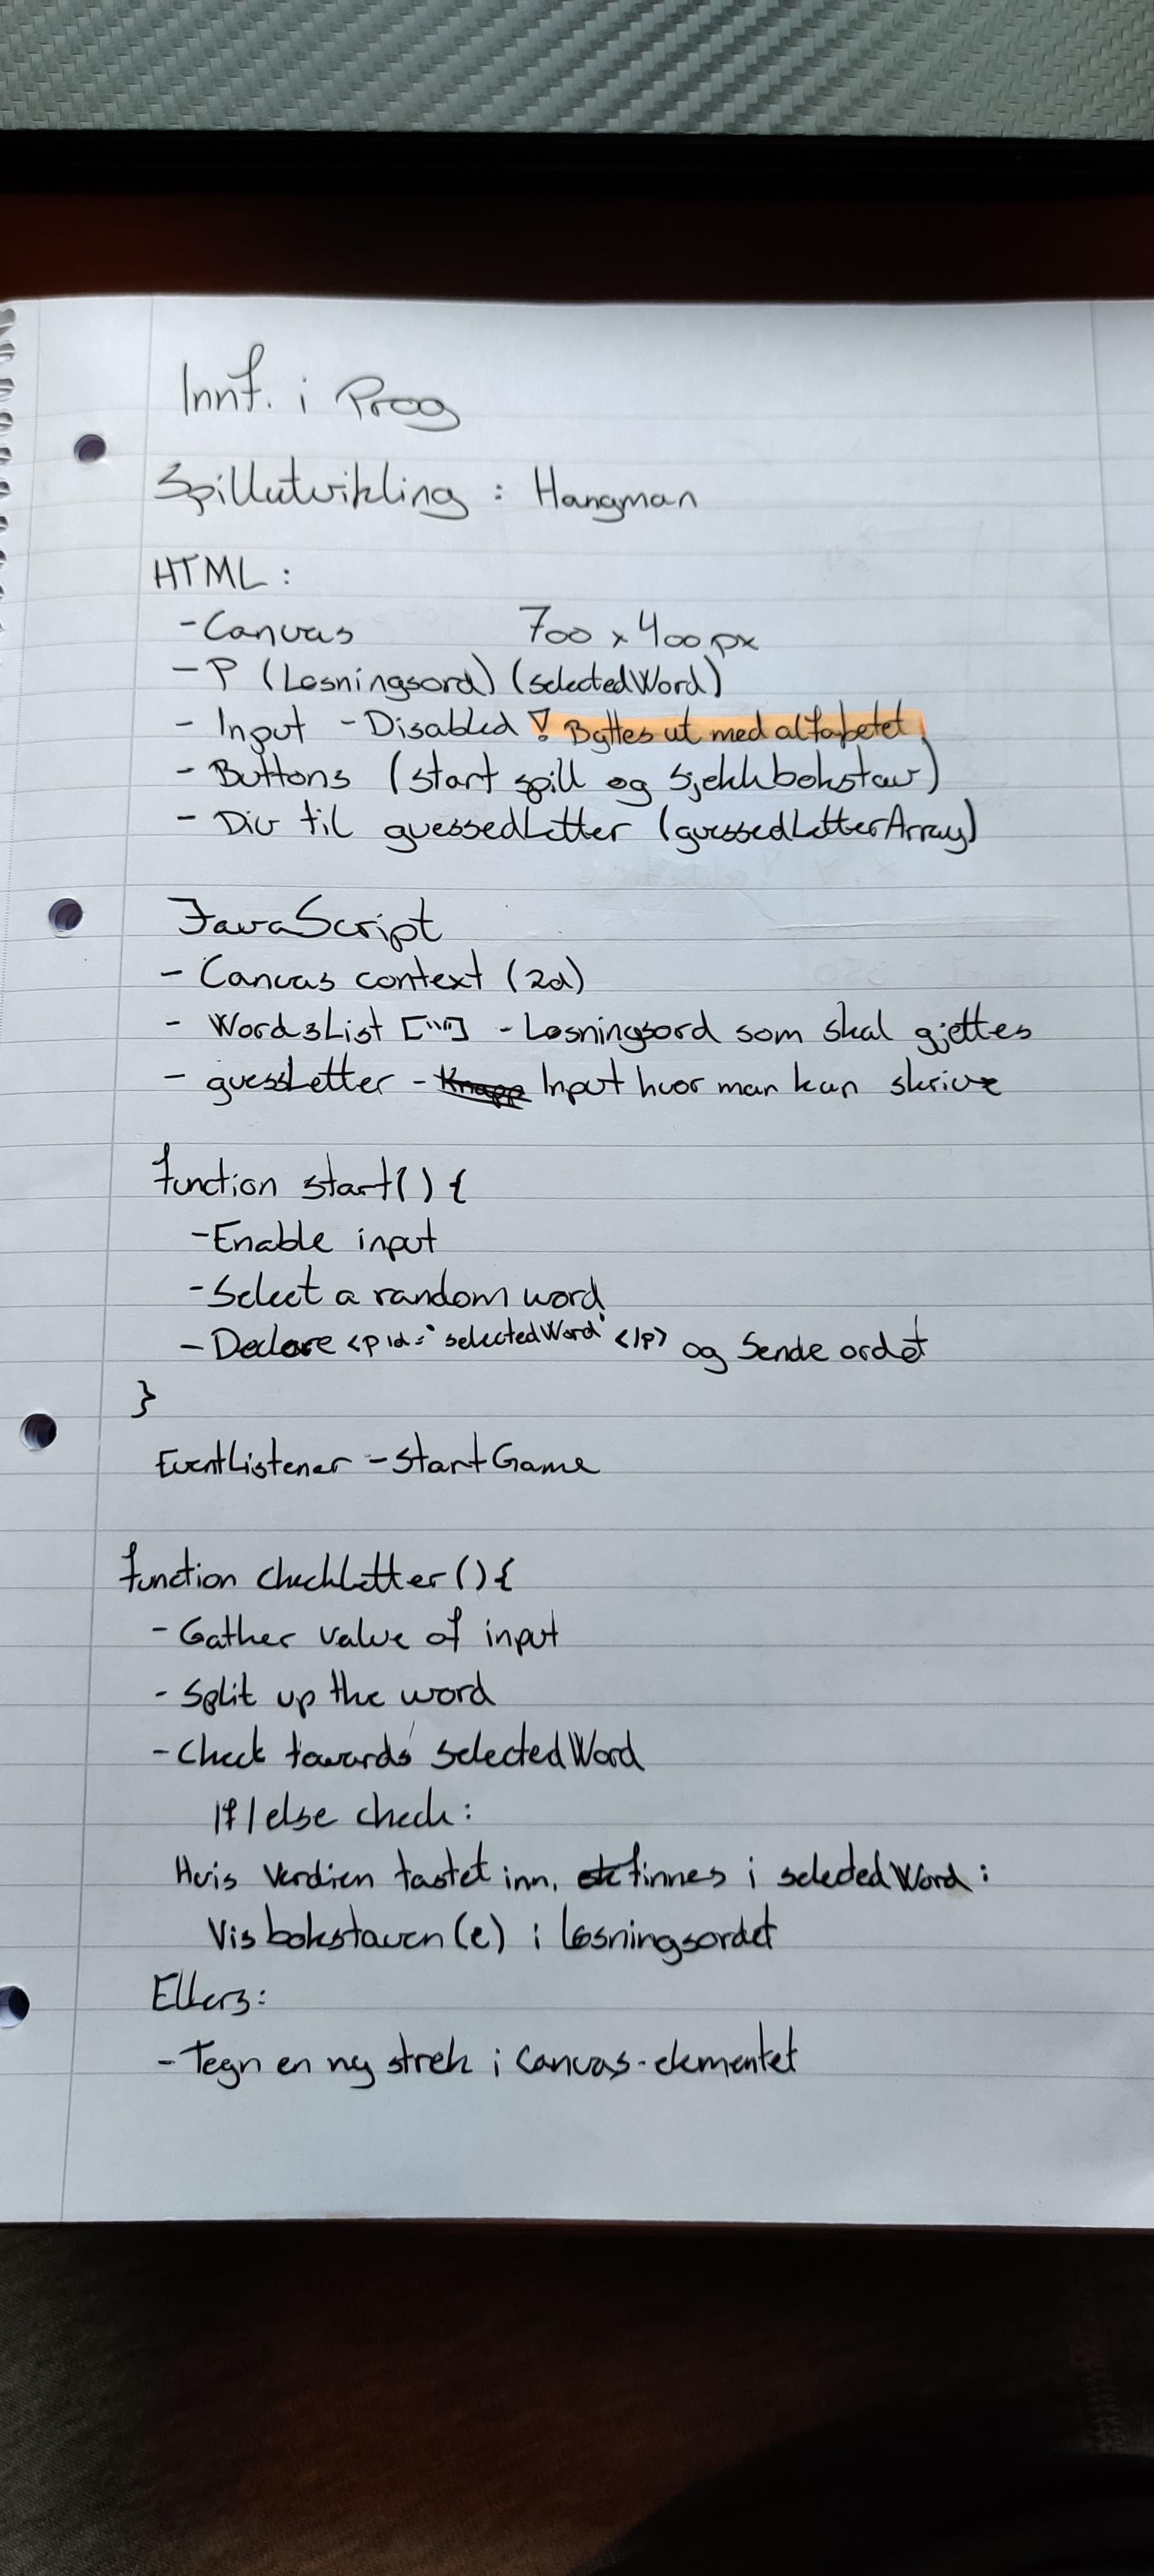 Innf. i Prog
Spillutvikling : Hangman
HTML :
- Canvas 700 x 400 px
- P (Løsningsord) (selectedWord)
- Input - Disabled ! Byttes ut med alfabetet
- Buttons (start spill og Sjekk bokstav)
- Div til guessedLetter (guessedLetterArray)
JavaScript
- Canvas context (2d)
- WordsList [""] - Løsningsord som skal gjettes
- guessLetter - Knapp Input hvor man kan skrive
function start() {
- Enable input
- Select a random word
- Declare <p id="selectedWord" </p> og Sende ordet
}
EventListener - StartGame
function checkLetter () {
- Gather value of input
- Split up the word
- Check towards selectedWord
If / else check :
Hvis verdien tastet inn, finnes i selectedWord :
Vis bokstaven (e) i løsningsordet
Ellers :
- Tegn en ny strek i canvas-elementet